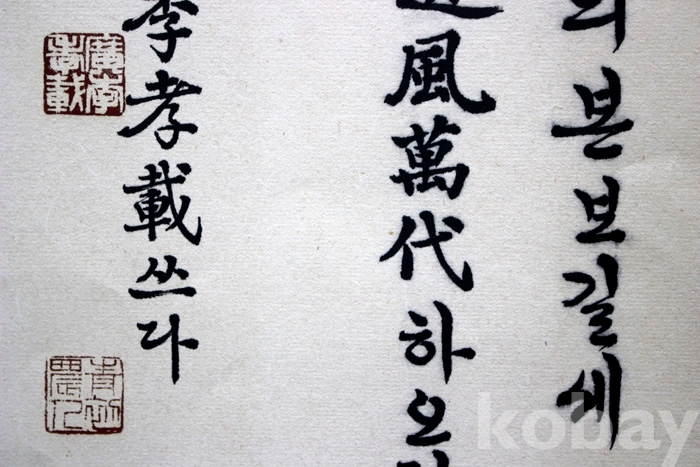 의 본 보 길 세
風 萬 代 하 오
李 孝 載 쓰 다
廣李
孝載
kobay